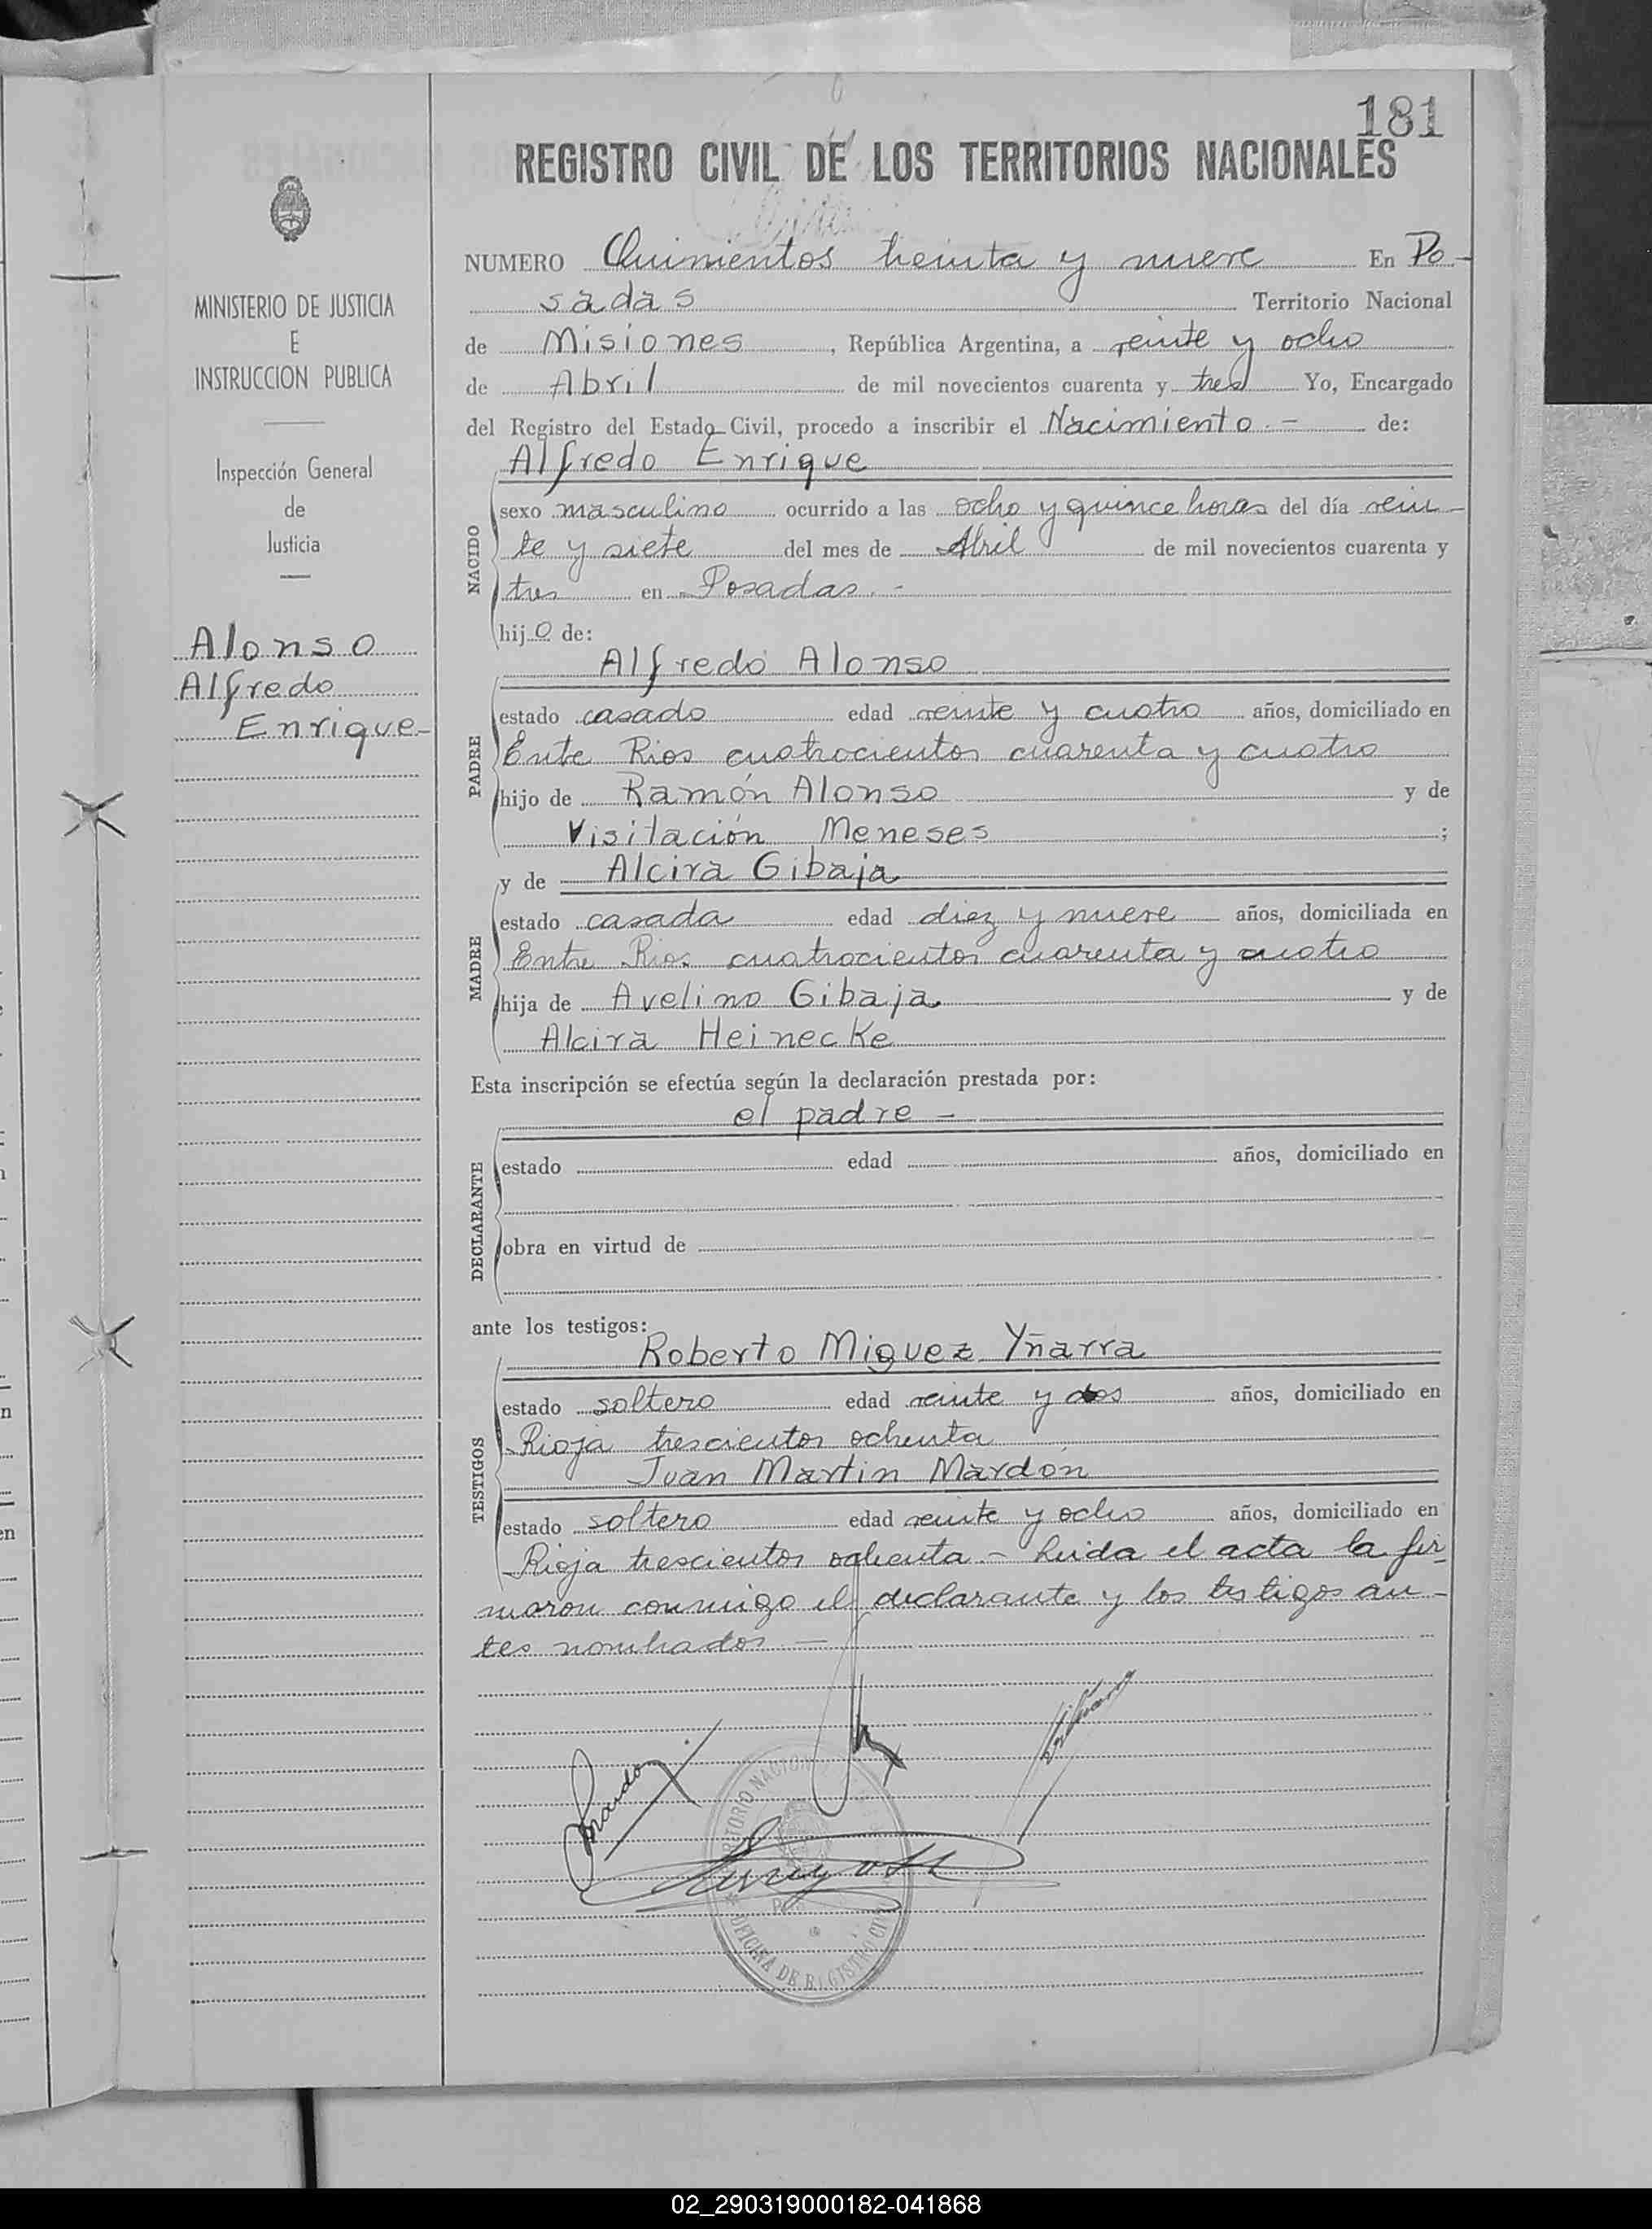 181
REGISTRO CIVIL DE LOS TERRITORIOS NACIONALES
MINISTERIO DE JUSTICIA
E
INSTRUCCION PUBLICA
Inspección General
de
Justicia
Alonso
Alfredo
Enrique-
NUMERO Quinientos treinta y nueve En Po-
sadas Territorio Nacional
de Misiones, República Argentina, a veinte y ocho
de Abril de mil novecientos cuarenta y tres Yo, Encargado
del Registro del Estado Civil, procedo a inscribir el Nacimiento.- de:
Alfredo Enrique
NACIDO
sexo masculino ocurrido a las ocho y quince horas del día vein-
te y siete del mes de Abril de mil novecientos cuarenta y
tres en Posadas.-
hijo de:
Alfredo Alonso
PADRE
estado casado edad veinte y cuatro años, domiciliado en
Ente Rios cuatrocientos cuarenta y cuatro
hijo de Ramón Alonso y de
Visitación Meneses;
y de Alcira Gibaja
MADRE
estado casada edad diez y nueve años, domiciliada en
Entre Rios cuatrocientos cuarenta y cuatro
hija de Avelino Gibaja y de
Alcira Heinecke
Esta inscripción se efectúa según la declaración prestada por:
el padre -
DECLARANTE
estado edad años, domiciliado en
obra en virtud de
ante los testigos:
Roberto Miguez Yñarra
TESTIGOS
estado soltero edad veinte y dos años, domiciliado en
Rioja trescientos ochenta
Juan Martin Mardón
estado soltero edad veinte y ocho años, domiciliado en
Rioja trescientos ochenta - Leida el acta la fir-
maron conmigo el declarante y los testigos an-
tes nombrados -
Mardon
OFICINA DE REGISTRO CIVIL
02_290319000182-041868